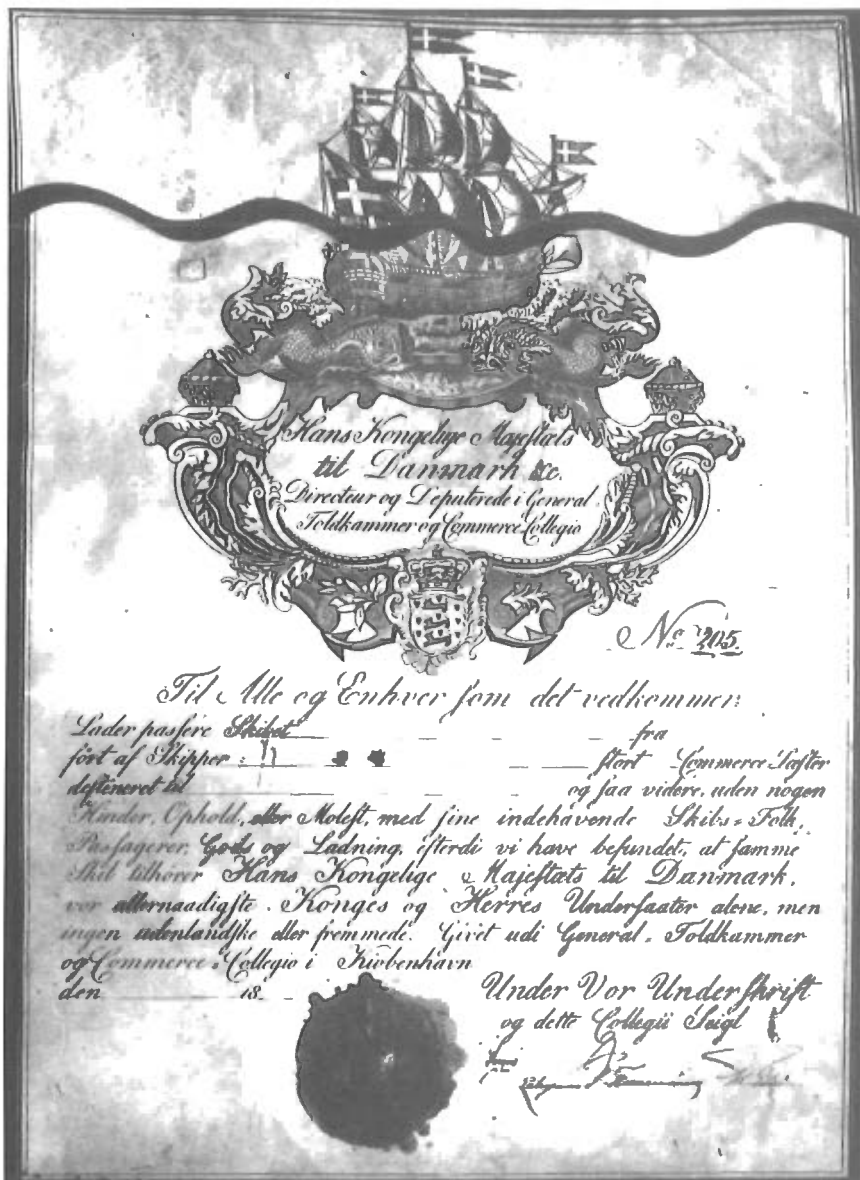 Hans Kongelige Majestæts
til Danmark &c.
Directeur og Deputerede i General
Toldkammer og Commerce-Collegio
No. 205.
Til Alle og Enhver som det vedkommer:
Lader passere Skibet fra
ført af Skipper : stort Commerce-Læster
destineret til og saa videre, uden nogen
Hinder, Ophold, eller Molest, med sine indehavende Skibs-Folk,
Passagerer, Gods og Ladning, efterdi vi have befundet, at samme
Skib tilhører Hans Kongelige Majestæts til Danmark,
vor allernaadigste Konges og Herres Undersaatter alene, men
ingen udenlandske eller fremmede. Givet udi General-Toldkammer
og Commerce-Collegio i Kiøbenhavn
den 18
Under Vor Underskrift
og dette Collegii Seigl